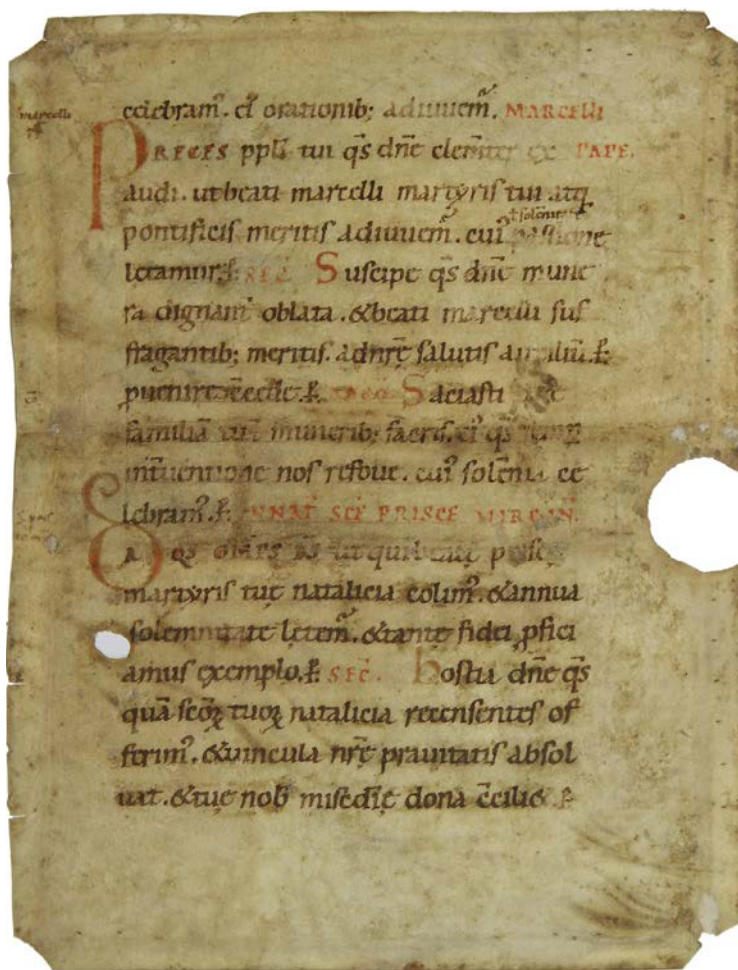 celebram᷒. et orationib; adiuuem᷒. MARCELLI
marcelli
PRECES ppli tui q̄s dn̄e clem̄ter ex PAPE.
audi. ut beati marcelli martyris tui atq;
pontificis meritis adiuuem᷒. cui᷒ passione
ł solēnitate
letamur. ꝑ. SEC̄. Suscipe q̄s dn̄e mune
ra dignant᷒ oblata. & beati marcelli suf
fragantib; meritis. ad nr̄ę salutis auxiliū. ꝑ.
ꝓuenire c̄cede. ꝑ. Saciasti dn̄e
familiā tuā munerib; sacris. ei᷒ q̄s
int̄uentione nos refoue. cui᷒ solēnia ce
lebram᷒. ꝑ. IN NAT̄. SC̄E PRISCE
DA QS OMPS DS ut qui beatę priscę
martyris tuę natalicia colim᷒. & annua
solemnitate lętem᷒. & tantę fidei ꝓfici
amus exemplo. ꝑ. SEC̄. hostia dn̄e q̄s
quā sc̄oꝝ tuoꝝ natalicia recensentes of
ferim᷒. & uincula nr̄ę prauitatis absol
uat. & tuę nob̄ mis̄cdię dona c̄ciliet. ꝑ